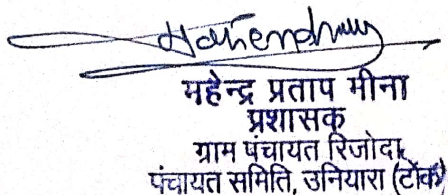 महेन्द्र प्रताप मीना
प्रशासक
ग्राम पंचायत रिजोदा
पंचायत समिति, उनियारा (टोंक)